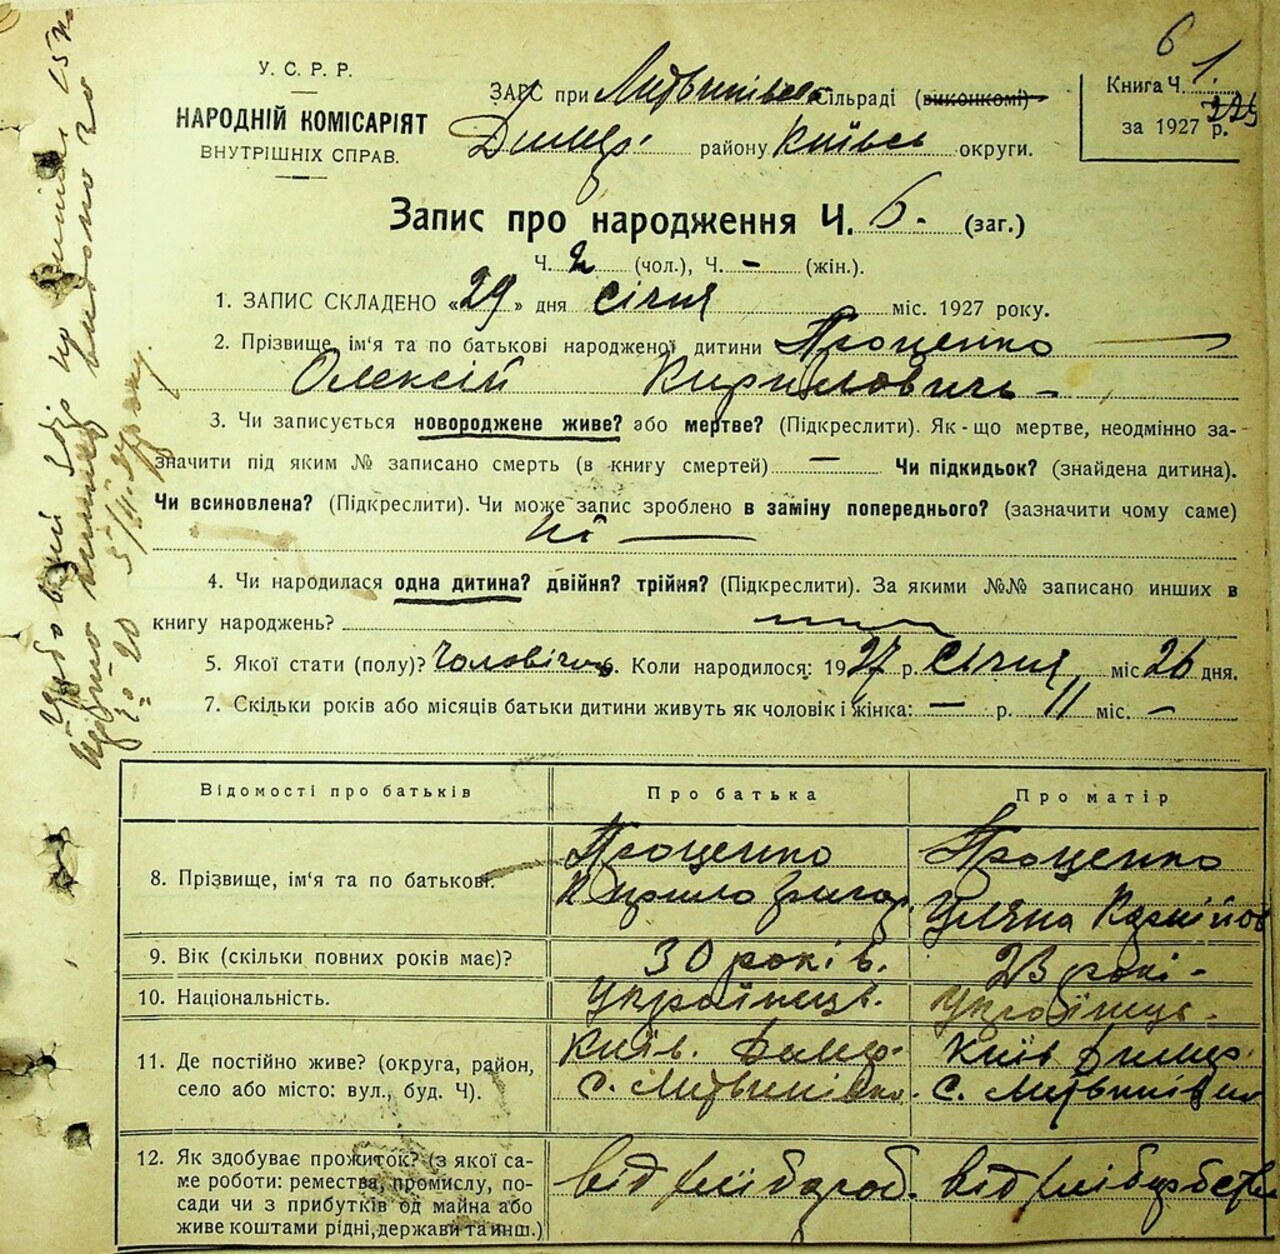 У. С. Р. Р.
НАРОДНІЙ КОМІСАРІЯТ
ВНУТРІШНІХ СПРАВ.
ЗАГС при Литвинівськ. Сільраді (виконкомі)
Димер. району Київськ округи.
6
Книга Ч. 1.
за 1927 р.
Запис про народження Ч. 6. (заг.)
Ч. 2 (чол.), Ч. - (жін.).
1. ЗАПИС СКЛАДЕНО «29» дня Січня міс. 1927 року.
2. Прізвище, ім'я та по батькові народженої дитини Проценко
Олексій Кирилович
3. Чи записується новороджене живе? або мертве? (Підкреслити). Як-що мертве, неодмінно за-
значити під яким № записано смерть (в книгу смертей) — Чи підкидьок? (знайдена дитина).
Чи всиновлена? (Підкреслити). Чи може запис зроблено в заміну попереднього? (зазначити чому саме)
Ні —
4. Чи народилася одна дитина? двійня? трійня? (Підкреслити). За якими №№ записано инших в
книгу народжень?
5. Якої стати (полу)? Чоловічої 6. Коли народилося: 1927 р. Січня міс 26 дня.
7. Скільки років або місяців батьки дитини живуть як чоловік і жінка: — р. 11 міс. —
Відомості про батьків Про батька Про матір
8. Прізвище, ім'я та по батькові.
Проценко
Кирило Григор.
Проценко
Уляна Корнійов
9. Вік (скільки повних років має)? 30 років. 23 рокі-
10. Національність. Українець. Українець.
11. Де постійно живе? (округа, район,
село або місто: вул., буд. Ч).
Київ. Димер.
с. Литвинівка.
Київ Димер.
с. Литвинівка
12. Як здобуває прожиток? (з якої са-
ме роботи: ремества, промислу, по-
сади чи з прибутків од майна або
живе коштами рідні, держави та инш.)
від хлібороб.
від